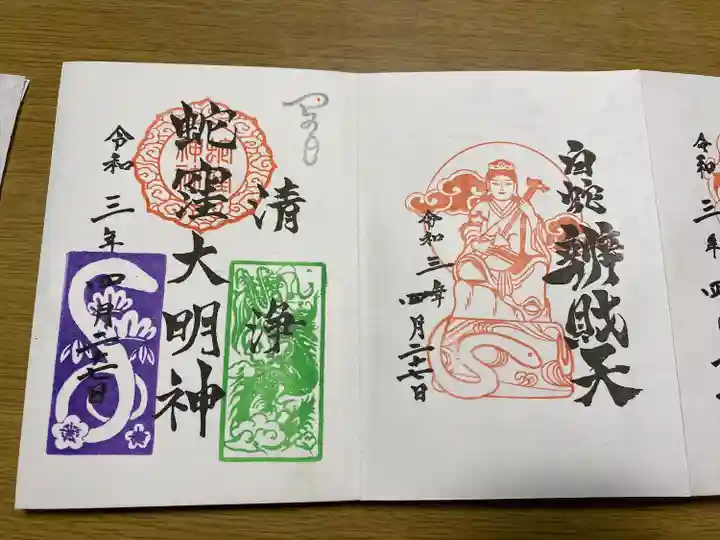 白蛇辨財天
令和三年四月二十七日
清
浄
蛇窪大明神
令和三年四月二十七日
令和三年四月